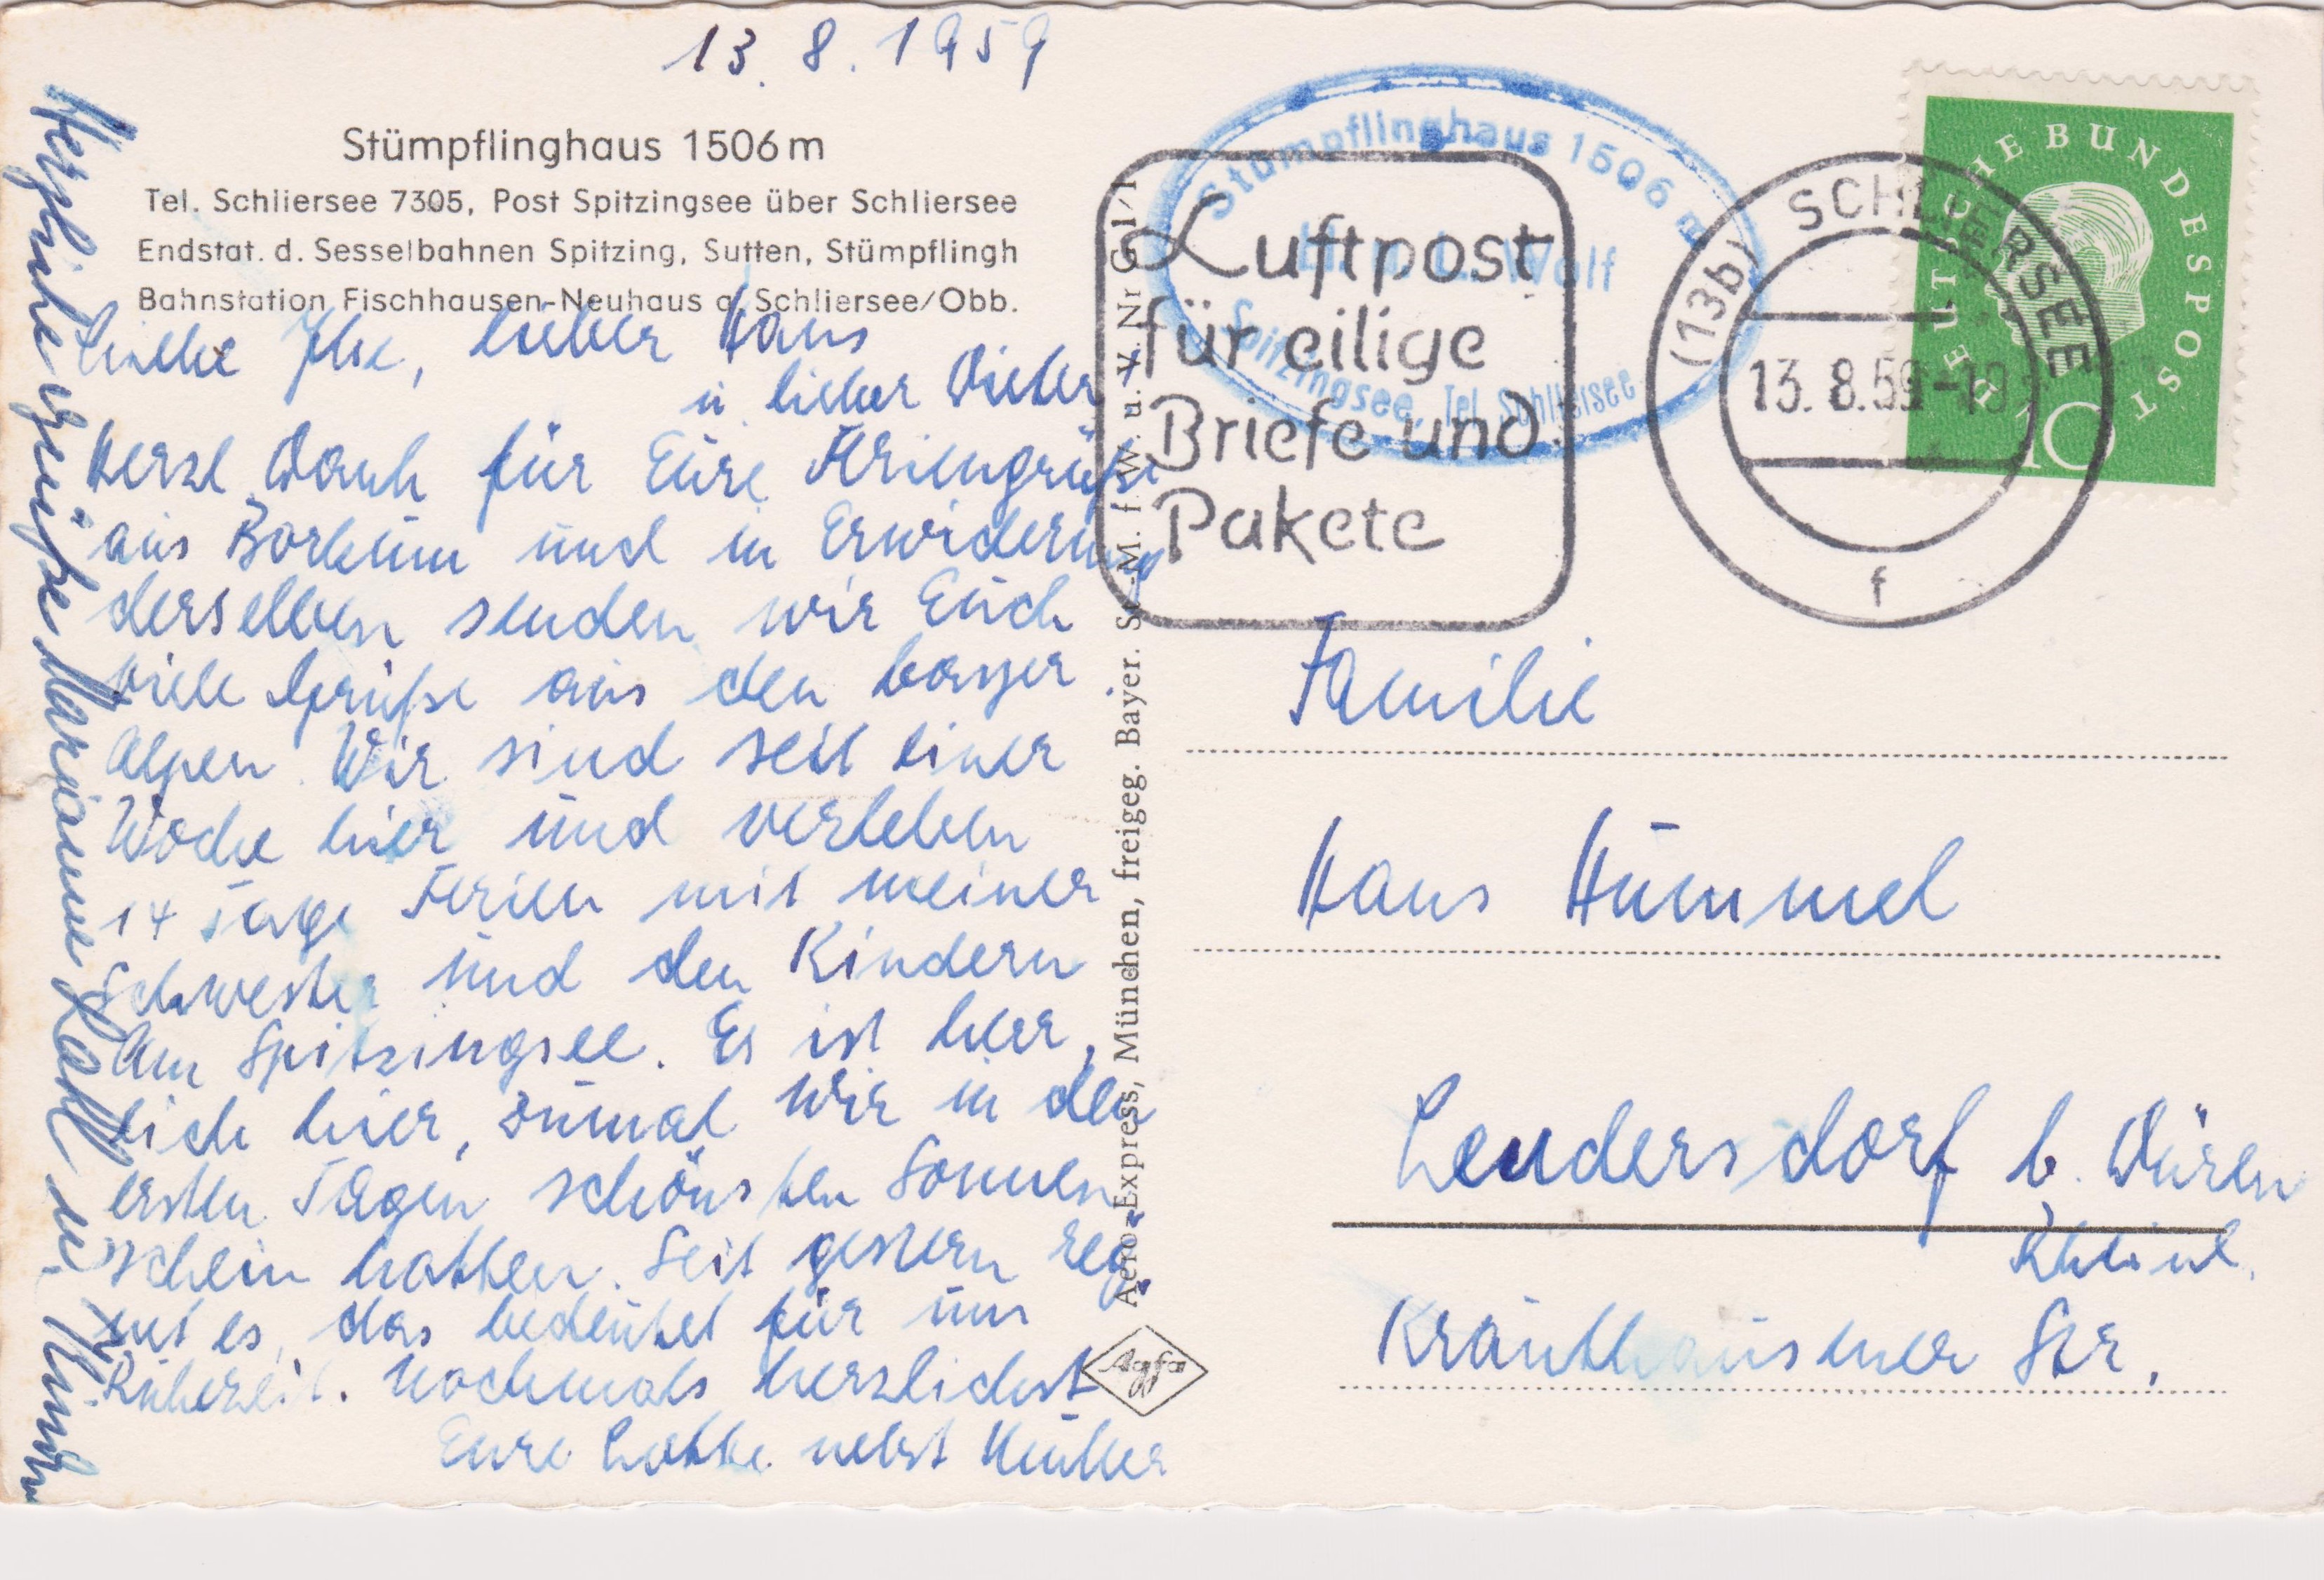 13. 8. 1959
Stümpflinghaus 1506 m
Tel. Schliersee 7305, Post Spitzingsee über Schliersee
Endstat. d. Sesselbahnen Spitzing, Sutten, Stümpflingh
Bahnstation Fischhausen-Neuhaus a. Schliersee/Obb.
Liebe Ilse, lieber Hans
u lieber Dieter
Herzl. Dank für Eure Feriengrüße
aus Borkum und in Erwiderung
derselben senden wir Euch
viele Grüße aus den bayer
Alpen. Wir sind seit einer
Woche hier und verleben
14 Tage Ferien mit meiner
Schwester und den Kindern
am Spitzingsee. Es ist herr,
lich hier, zumal wir in den
ersten Tagen schönsten Sonnen
schein hatten. Seit gestern reg
net es, das bedeutet für uns
Ruhezeit. Nochmals herzlichst
Eure Lotte nebst Mutter
Herzliche Grüße Marianne u. Kinder
Aero-Express, München, freigeg. Bayer. St.-M. f. W. u. V. Nr G 1/1
Agfa
Stümpflinghaus 1506 m
Wolf
Spitzingsee, Tel. Schliersee
Luftpost
für eilige
Briefe und
Pakete
(13b) SCHLIERSEE
13. 8. 59
f
DEUTSCHE BUNDESPOST
10
Familie
Hans Hummel
Lendersdorf b. Düren
Rheinl.
Krauthausener Str.